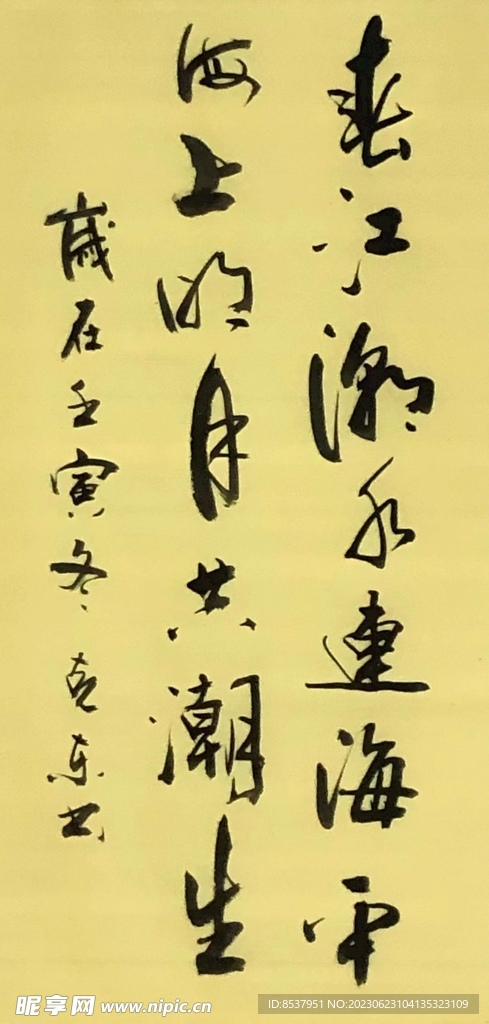 春江潮水連海平
海上明月共潮生
歲在壬寅冬 克東书
昵享网 www.nipic.cn
ID:8537951 NO:20230623104135323109